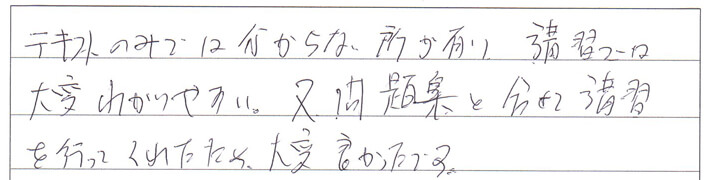 テキストのみでは分からない所が有り 講習では
大変わかりやすい。又問題集と合せて講習
を行ってくれたため、大変良かったです。